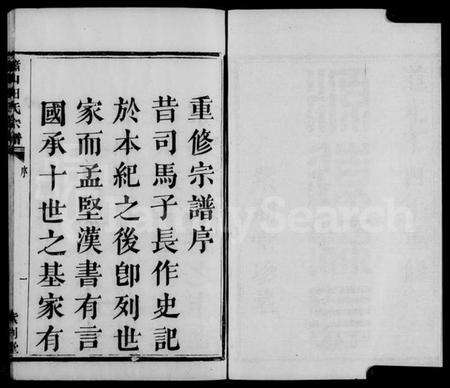 重修宗譜序
昔司馬子長作史記
於本紀之後卽列世
家而孟堅漢書有言
國承十世之基家有
蕭山田氏宗譜
序
一
紫荆堂
FamilySearch